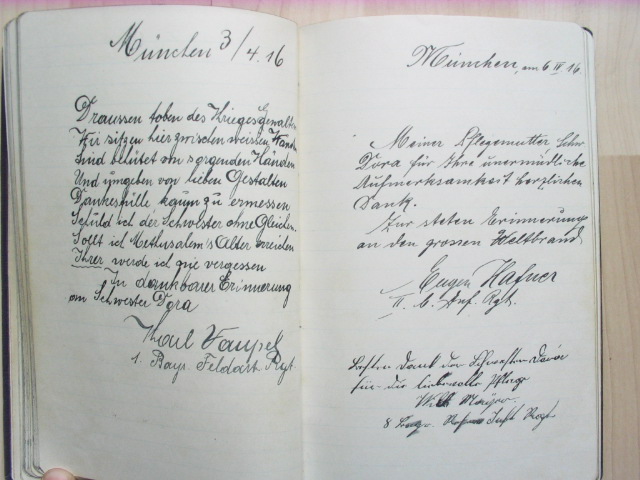 München 3/4.16
Draussen toben des Krieges Gewalten
Wir sitzen hier zwischen weissen Wänden
Sind behütet von sorgenden Händen
Und umgeben von lieben Gestalten
Dankesfülle kaum zu ermessen
Schuld ich der Schwester ohne Gleichen
Sollt ich Methusalem's Alter erreichen
Ihrer werde ich nie vergessen
In dankbarer Erinnerung
an Schwester Dora
Karl Vaupel
1. Bayr. Feldart. Rgt.
München, am 6 IV. 16.
Meiner Pflegemutter Schw.
Dora für Ihre unermüdliche
Aufmerksamkeit herzlichen
Dank.
Zur steten Erinnerung
an den grossen Weltbrand
Eugen Hafner
II. b. Inf. Rgt.
Besten Dank der Schwester Dora
für die liebevolle Pflege
Mayer
8 Inft Regt